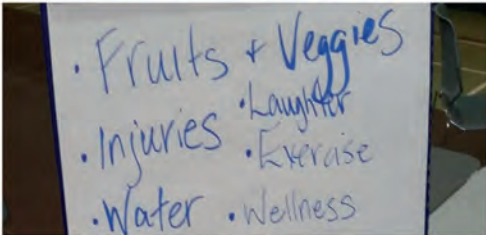 • Fruits + Veggies
• Injuries
• Laughter
• Exercise
• Water
• Wellness